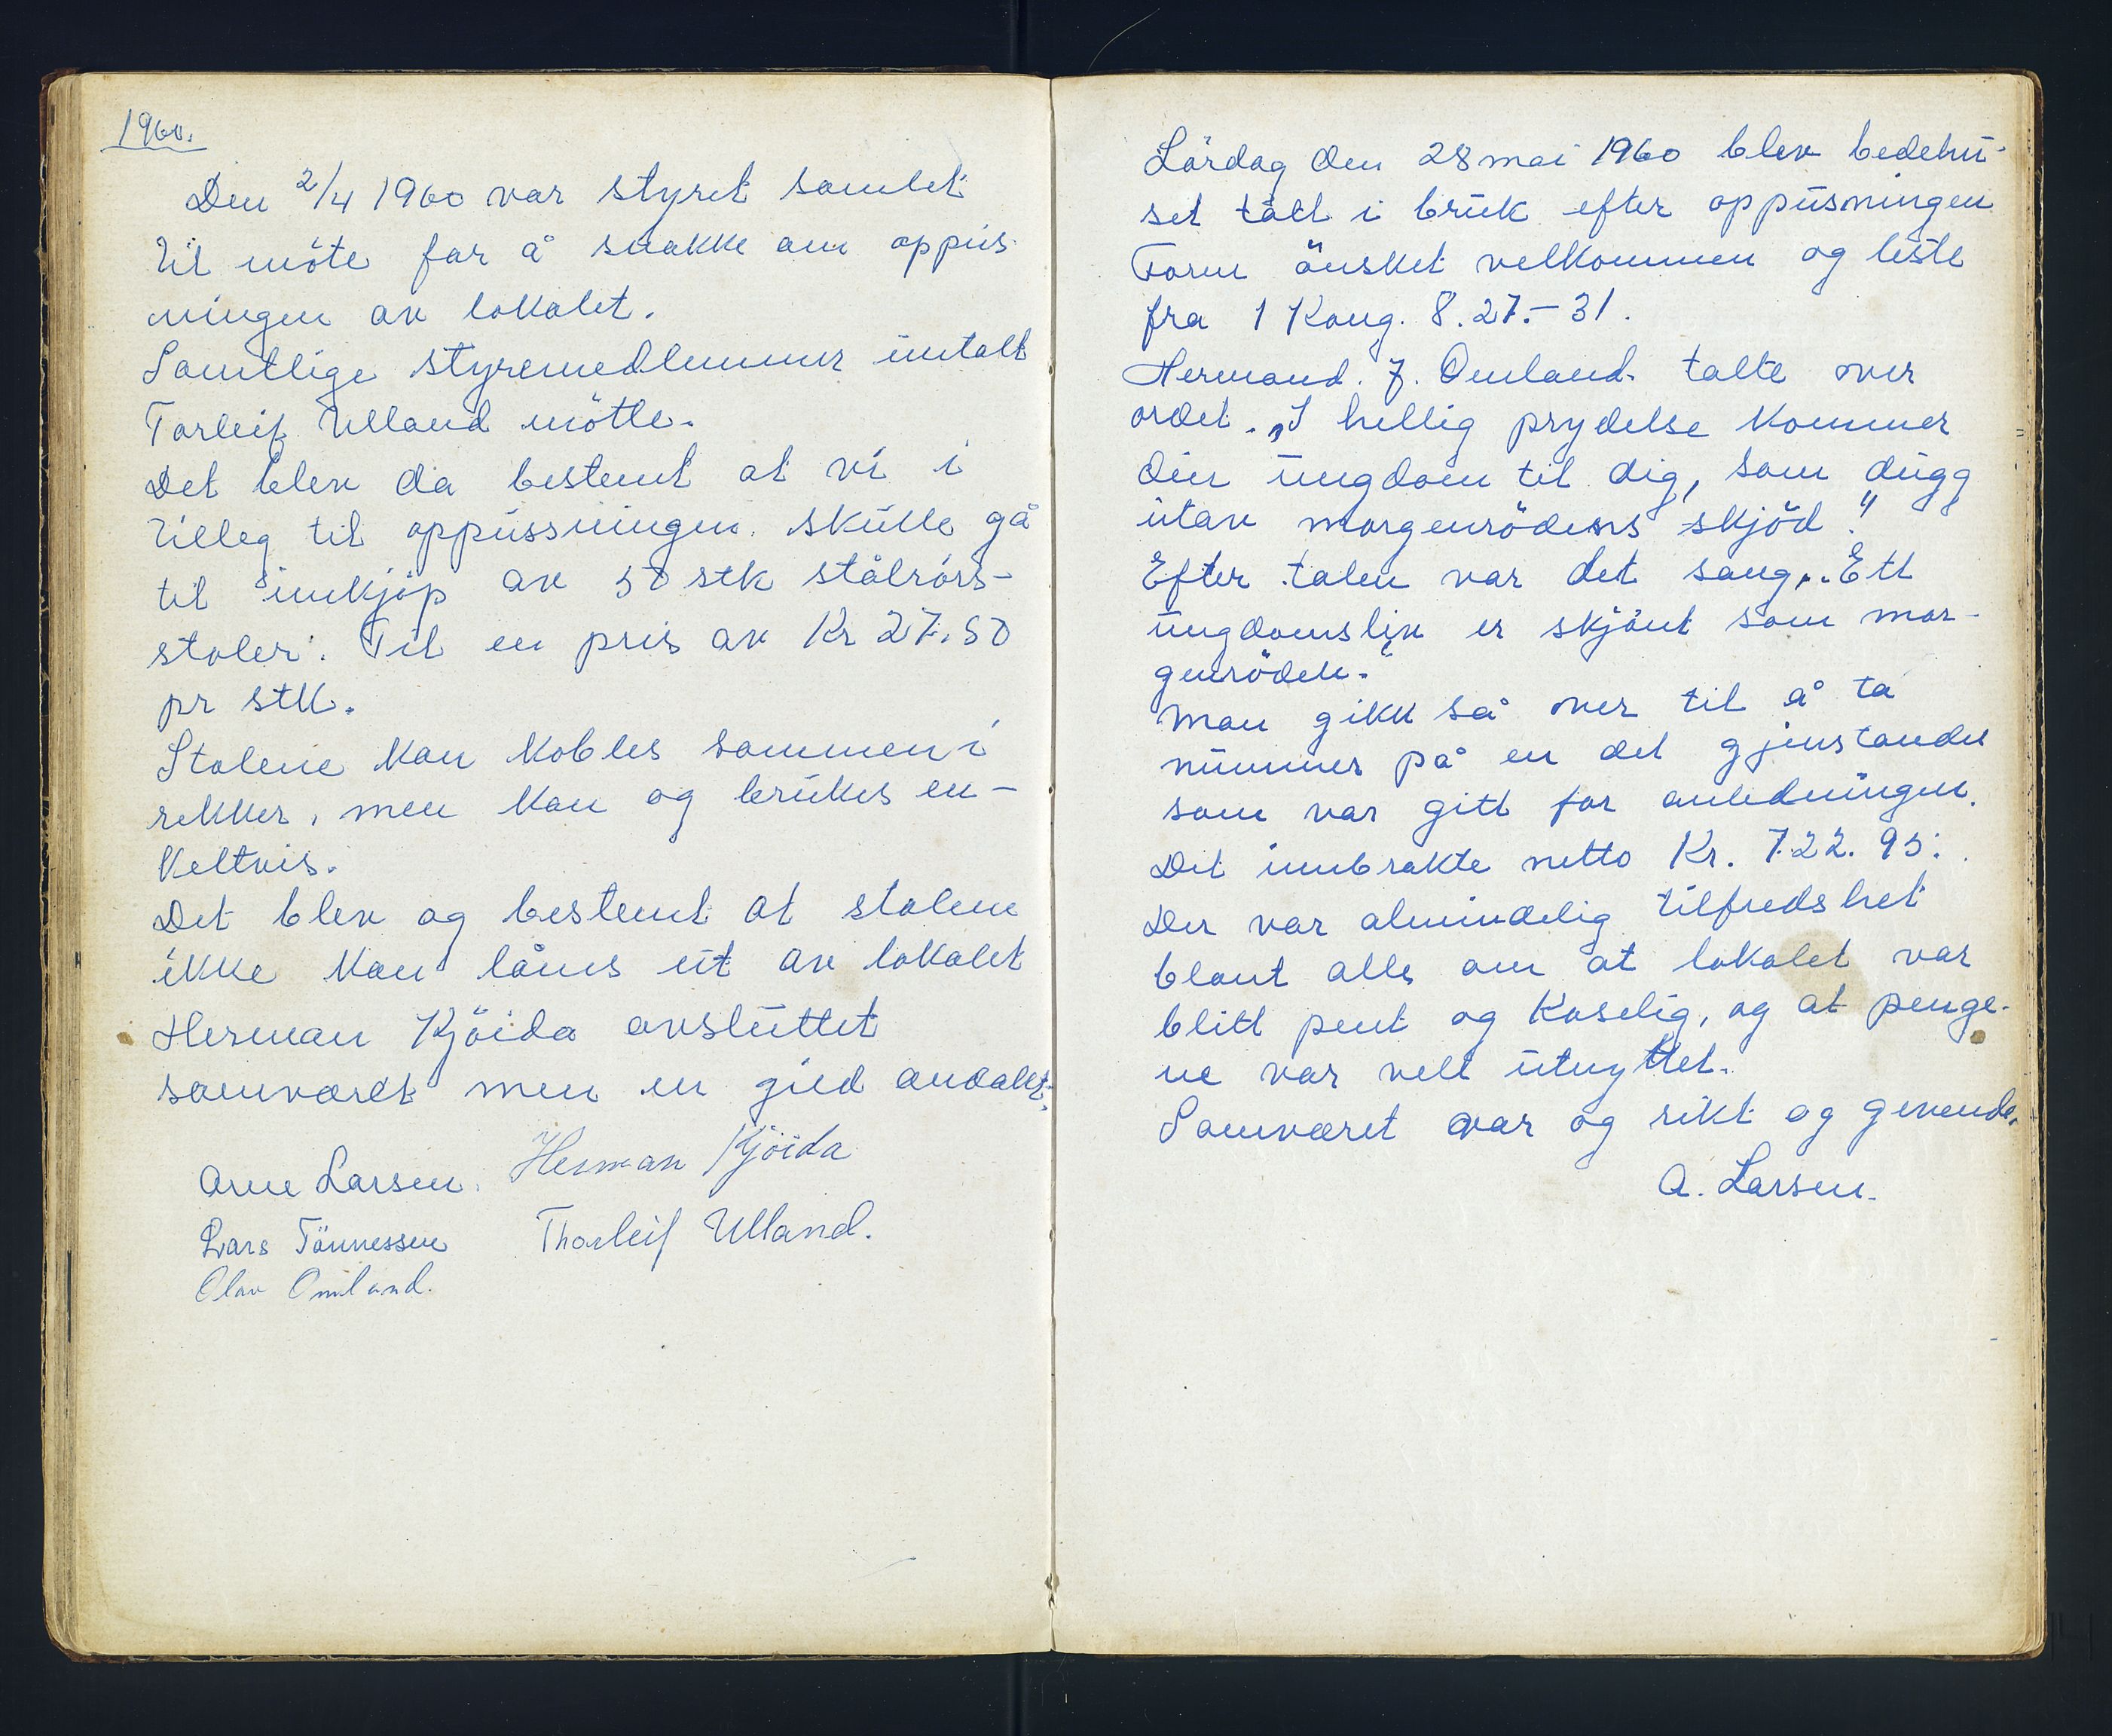 1960.
Den 2/4 1960 var styret samlet
til möte for å snakke om oppus
ningen av lokalet.
Samtlige styremedlemmer untatt
Torleif Ulland mötte.
Det blev da bestemt at vi i
tilleg til oppussningen. skulle gå
til innkjöp av 50 stk stålrörs-
stoler. Til en pris av Kr 27.50
pr stk.
Stolene kan kobles sammen i
rekker, men kan og brukes en-
keltvis.
Det blev og bestemt at stolene
ikke kan lånes ut av lokalet
Herman Kjöida avsluttet
samværet men en gild andakt.
Arne Larsen. Herman Kjöida
Lars Tönnessen Thorleif Ulland.
Olav Omland.
Lördag den 28 mai 1960 blev bedehu-
set tatt i bruk efter oppusningen
Form önsket velkommen og leste
fra 1 Kong. 8.27.-31.
Hermand. J. Omland. talte over
ordet. „I hellig prydelse kommer
din ungdom til dig, som dugg
utav morgenrödens skjöd."
Efter talen var det sang,. Ett
ungdomsliv er skjönt som mor-
genröden."
man gikk så over til å ta
nummer på en del gjenstander
som var gitt for anledningen.
Det innbrakte netto Kr. 722.95.
Der var almindelig tilfredshet
blant alle om at lokalet var
blitt pent og koselig, og at penge-
ne var vell utnyttet.
Samværet var og rikt og givende.
A. Larsen.